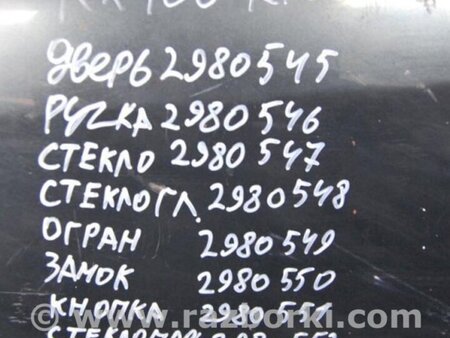 дверь 2980545
РУЧКА 2980546
СТЕКЛО 2980547
СТЕКЛОГЛ. 2980548
ОГРАН 2980549
ЗАМОК 2980550
КНОПКА 2980551
www.razborki.com